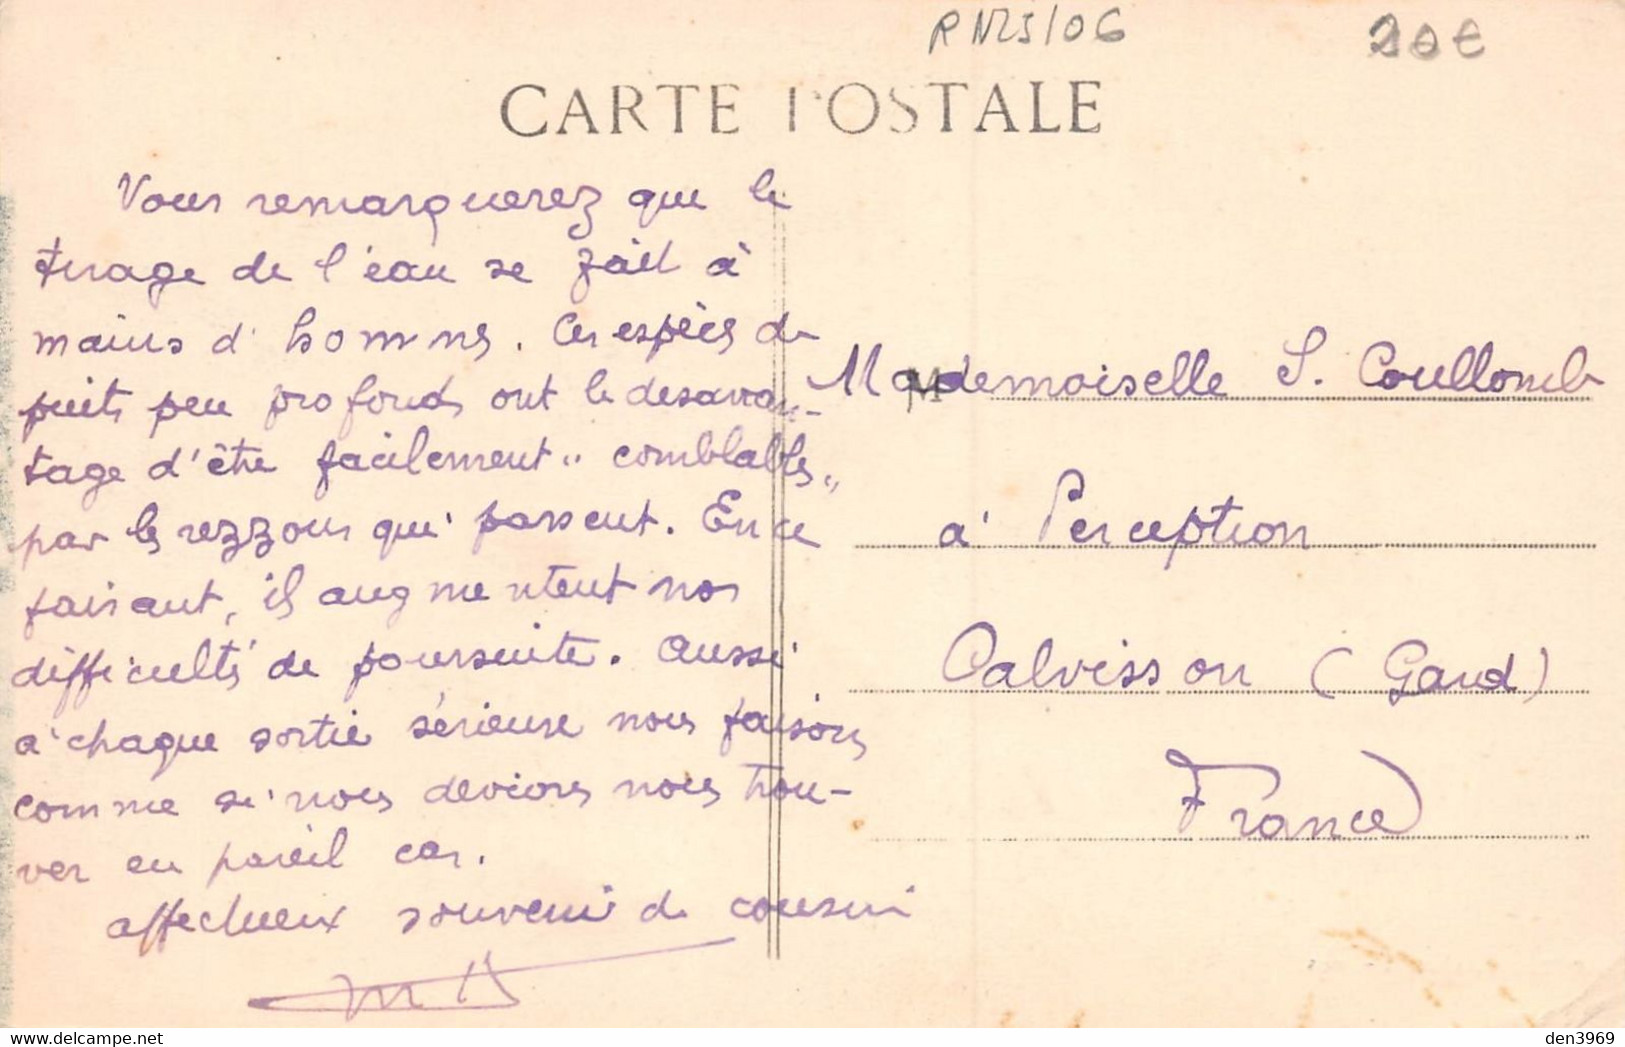 RN25/06
20€
CARTE POSTALE
Vous remarquerez que le
tirage de l'eau se fait à
mains d'hommes. Ces espèces de
puits peu profonds ont le desavan-
tage d'être facilement "comblables"
par les rezzous qui passent. En ce
faisant, ils augmentent nos
difficultés de poursuite. Aussi
à chaque sortie sérieuse nous faisons
comme si nous devions nous trou-
ver en pareil cas.
affectueux souvenir du cousin
Mademoiselle S. Coullomb
à Perception
Calvisson (Gard)
France
delcampe.net
den3969